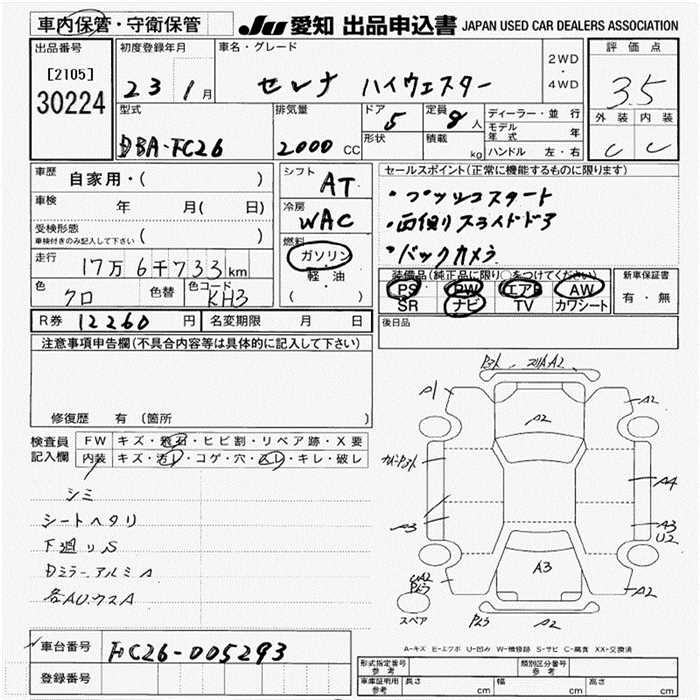 車内保管・守衛保管
JU 愛知 出品申込書 JAPAN USED CAR DEALERS ASSOCIATION
出品番号
[2105]
30224
初度登録年月
23 1月
車名・グレード
セレナ ハイウェスター
2WD
・
4WD
評価点
3.5
外装 内装
C C
型式
DBA-FC26
排気量
2000 CC
ドア
5
形状
定員
8人
積載
kg
ディーラー・並行
モデル年式 年
ハンドル 左・右
車歴
自家用・( )
車検 年 月( 日)
受検形態
車検付きのみ記入して下さい ( )
走行 17万6千733km
色 クロ 色替 色コード KH3
シフト
AT
冷房
WAC
燃料
ガソリン
・
軽・油
( )
セールスポイント(正常に機能するものに限ります)
・プッシュスタート
・両側リスライドドア
・バックカメラ
装備品(純正品に限り○をつけてください)
PS PW エアB AW
SR ナビ TV カワシート
新車保証書
有・無
R券 12260 円 名変期限 月 日
後日品
注意事項申告欄(不具合内容等は具体的に記入して下さい)
修復歴 有(箇所 )
検査員
記入欄
FW キズ・飛石・ヒビ割・リペア跡・X要
内装 キズ・汚れ・コゲ・穴・スレ・キレ・破レ
シミ
シートヘタリ
下廻りS
Dミラー アルミA
各AU.ウスA
A1
A2
A2
A4
A3
A3
U2
A3
A2
A2
スペア
A-キズ E-エクボ U-凹み W-補修跡 S-サビ C-腐食 XX-交換済
車台番号 FC26-005293
登録番号
形式指定番号
参考
類別区分番号
参考
車庫証明用
参考
長さ cm 幅 cm 高さ cm